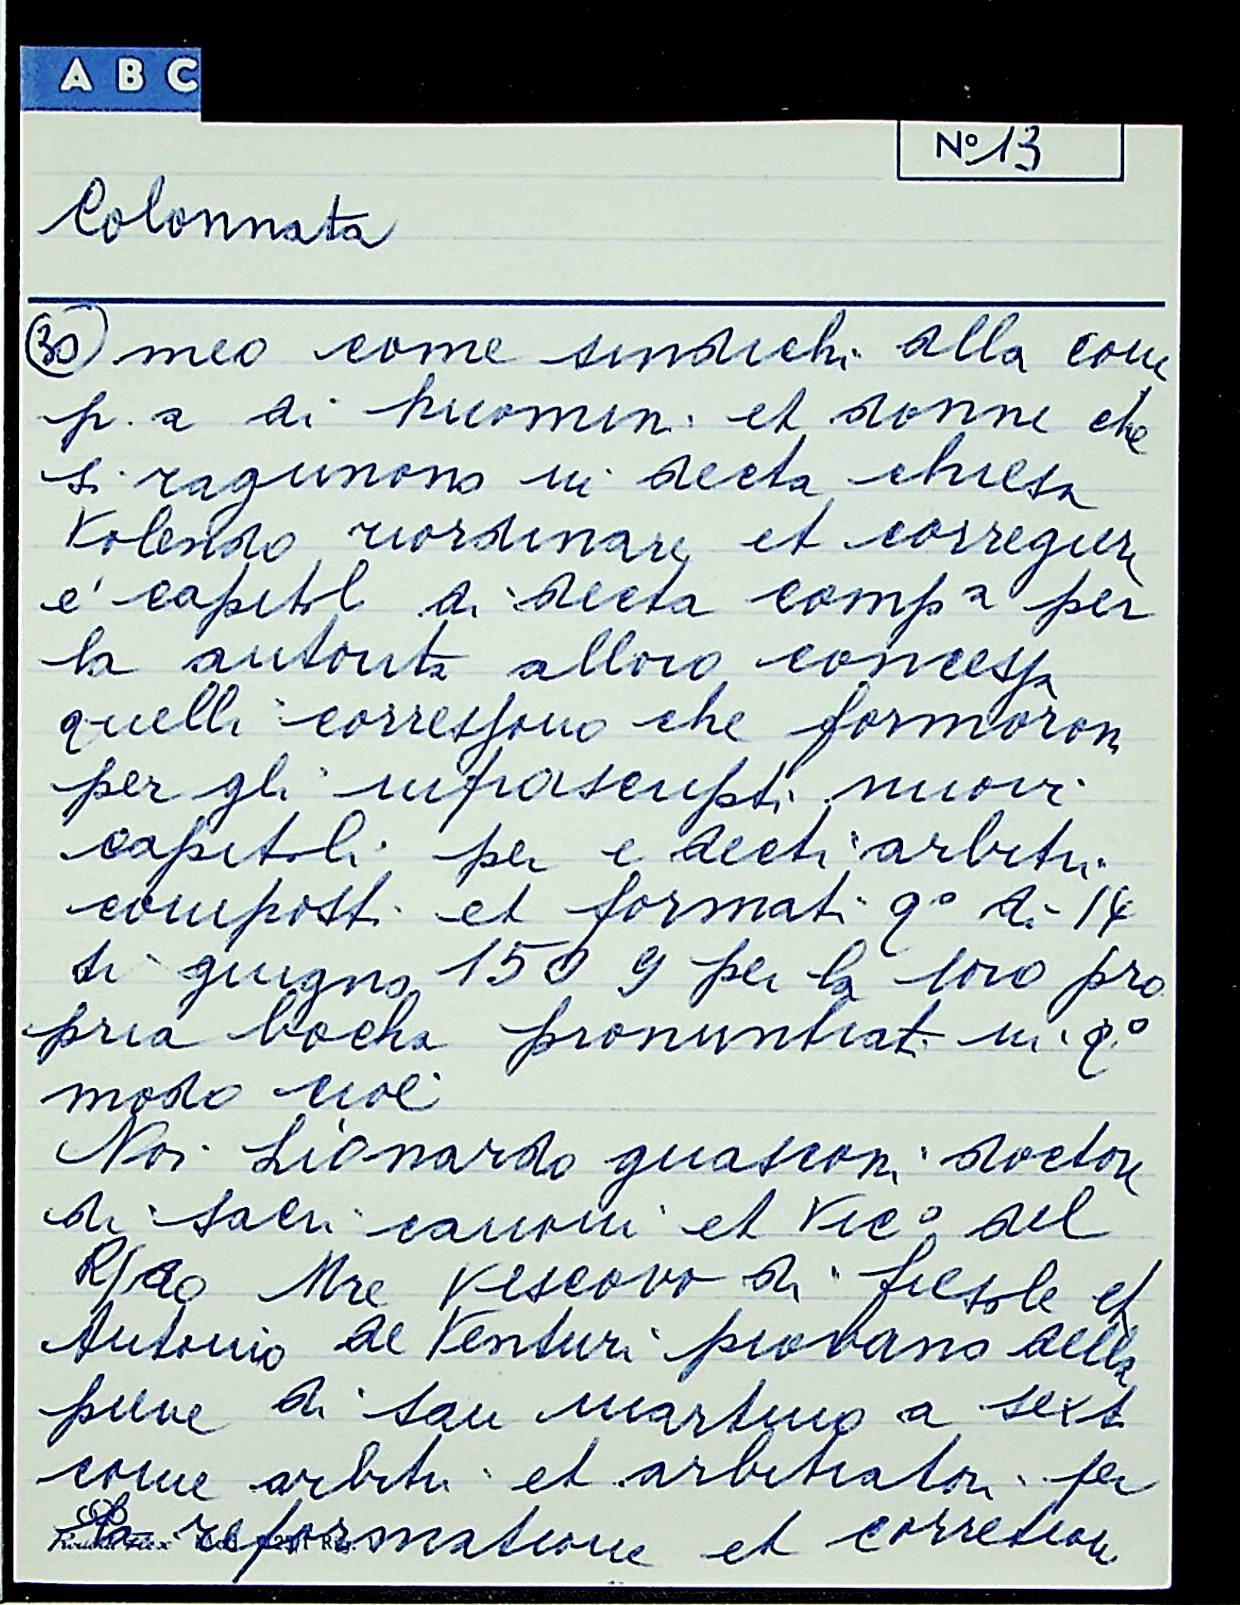 A B C
Nº 13
Colonnata
(30) meo come sindichi alla com
p.a di huomini et donne che
si ragunono in decta chiesa
Volendo riordinare et corregiere
e' capitoli di decta compa per
la autorita alloro concessa
quelli corressono che formoron
per gli infrascripti nuovi
capitoli per e decti arbitri
composti et formati qo di 14
di giugno 1509 per la loro pro
pria bocha pronuntiati in qo
modo cioè
Noi Lionardo guasconi doctore
di sacri canoni et Vico del
R/do Mre Vescovo di fiesole et
Antonio de Venturi piovano della
pieve di san martino a sexto
come arbitri et arbitratori per
la reformatione et corretione